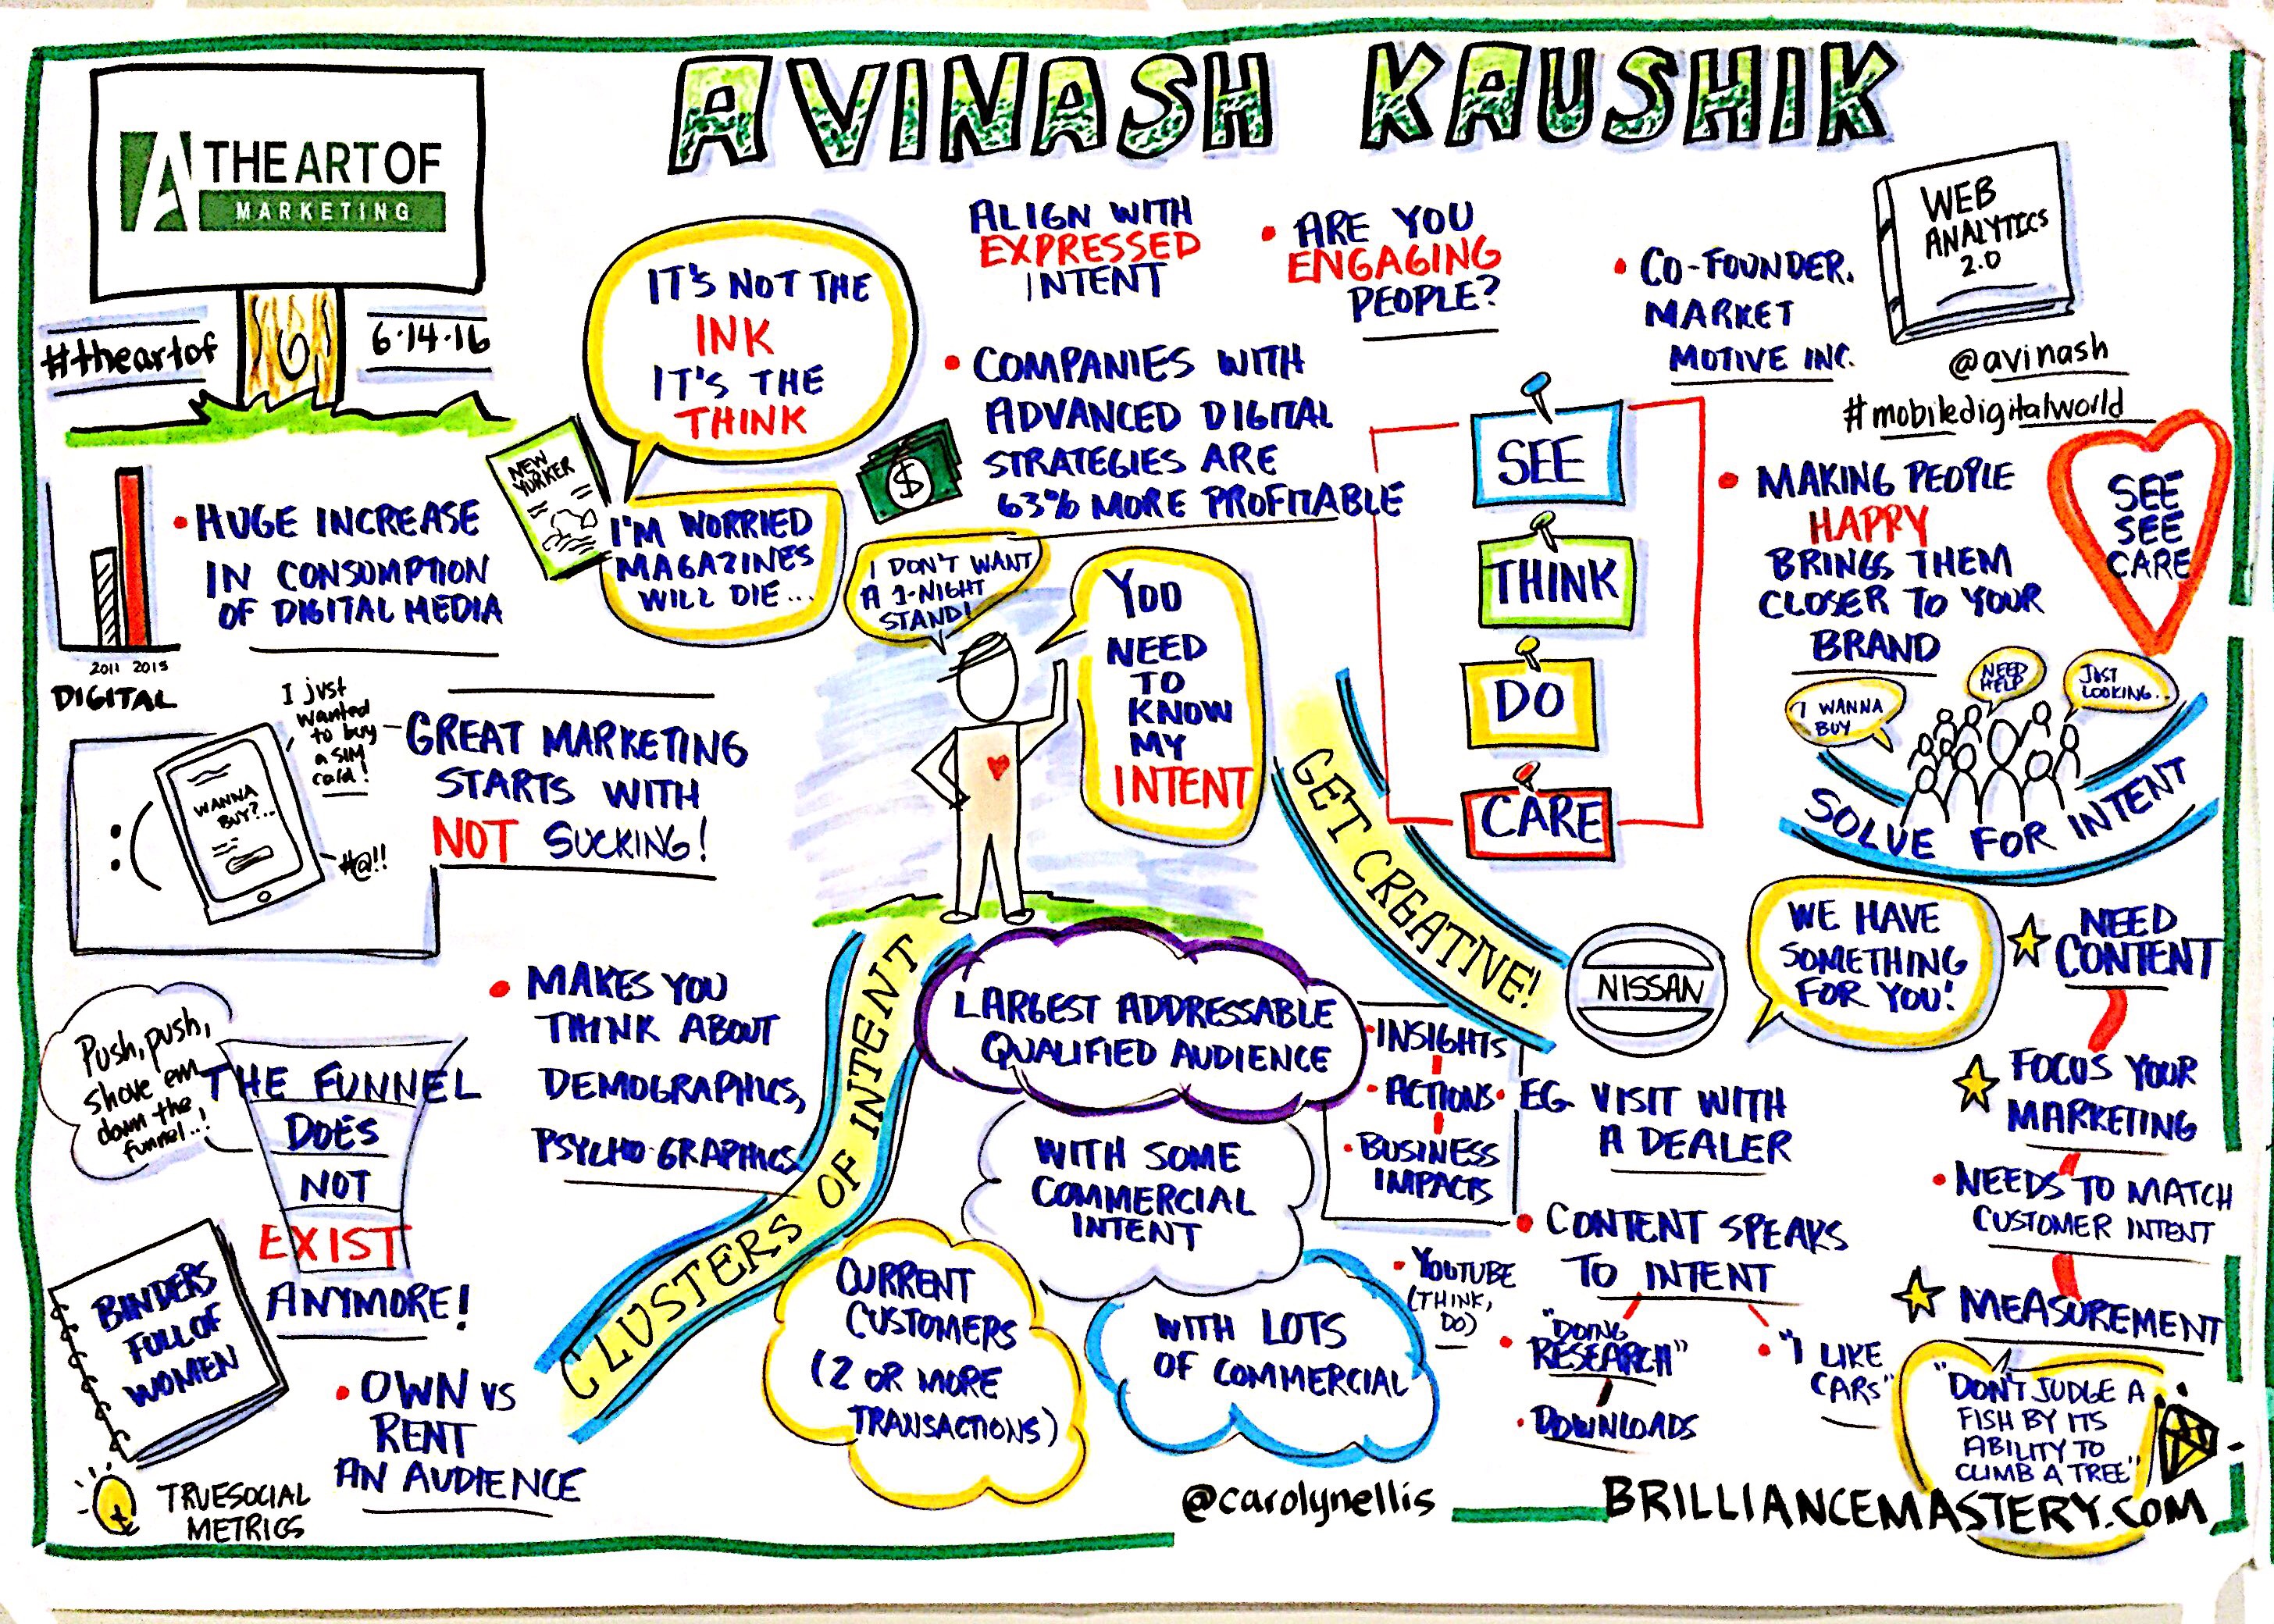 AVINASH KAUSHIK
A
THE ART OF
MARKETING
#theartof
6.14.16
IT'S NOT THE
INK
IT'S THE
THINK
NEW
YORKER
I'M WORRIED
MAGAZINES
WILL DIE...
ALIGN WITH
EXPRESSED
INTENT
• ARE YOU
ENGAGING
PEOPLE?
• CO-FOUNDER.
MARKET
MOTIVE INC.
WEB
ANALYTICS
2.0
@avinash
#mobiledigitalworld
• COMPANIES WITH
ADVANCED DIGITAL
STRATEGIES ARE
63% MORE PROFITABLE
$
• HUGE INCREASE
IN CONSUMPTION
OF DIGITAL MEDIA
2011 2015
DIGITAL
I DON'T WANT
A 1-NIGHT
STAND!
YOU
NEED
TO
KNOW
MY
INTENT
SEE
THINK
DO
CARE
• MAKING PEOPLE
HAPPY
BRINGS THEM
CLOSER TO YOUR
BRAND
SEE
SEE
CARE
I WANNA
BUY
NEED
HELP
JUST
LOOKING..
SOLVE FOR INTENT
I just
wanted
to buy
a SIM
card!
:(
WANNA
BUY?...
#@!!
GREAT MARKETING
STARTS WITH
NOT SUCKING!
GET CREATIVE!
NISSAN
WE HAVE
SOMETHING
FOR YOU!
NEED
CONTENT
FOCUS YOUR
MARKETING
• NEEDS TO MATCH
CUSTOMER INTENT
MEASUREMENT
"DON'T JUDGE A
FISH BY ITS
ABILITY TO
CLIMB A TREE"
Push, push,
shove em
down the
funnel..!
THE FUNNEL
DOES
NOT
EXIST
ANYMORE!
• MAKES YOU
THINK ABOUT
DEMOGRAPHICS,
PSYCHO-GRAPHICS
CLUSTERS OF INTENT
LARGEST ADDRESSABLE
QUALIFIED AUDIENCE
WITH SOME
COMMERCIAL
INTENT
CURRENT
CUSTOMERS
(2 OR MORE
TRANSACTIONS)
WITH LOTS
OF COMMERCIAL
• INSIGHTS
• ACTIONS
• BUSINESS
IMPACTS
• EG. VISIT WITH
A DEALER
• CONTENT SPEAKS
TO INTENT
• YOUTUBE
(THINK,
DO)
• "DOING
RESEARCH"
• DOWNLOADS
• "I LIKE
CARS"
BINDERS
FULL OF
WOMEN
• OWN VS
RENT
AN AUDIENCE
TRUESOCIAL
METRICS
@carolynellis
BRILLIANCEMASTERY.COM